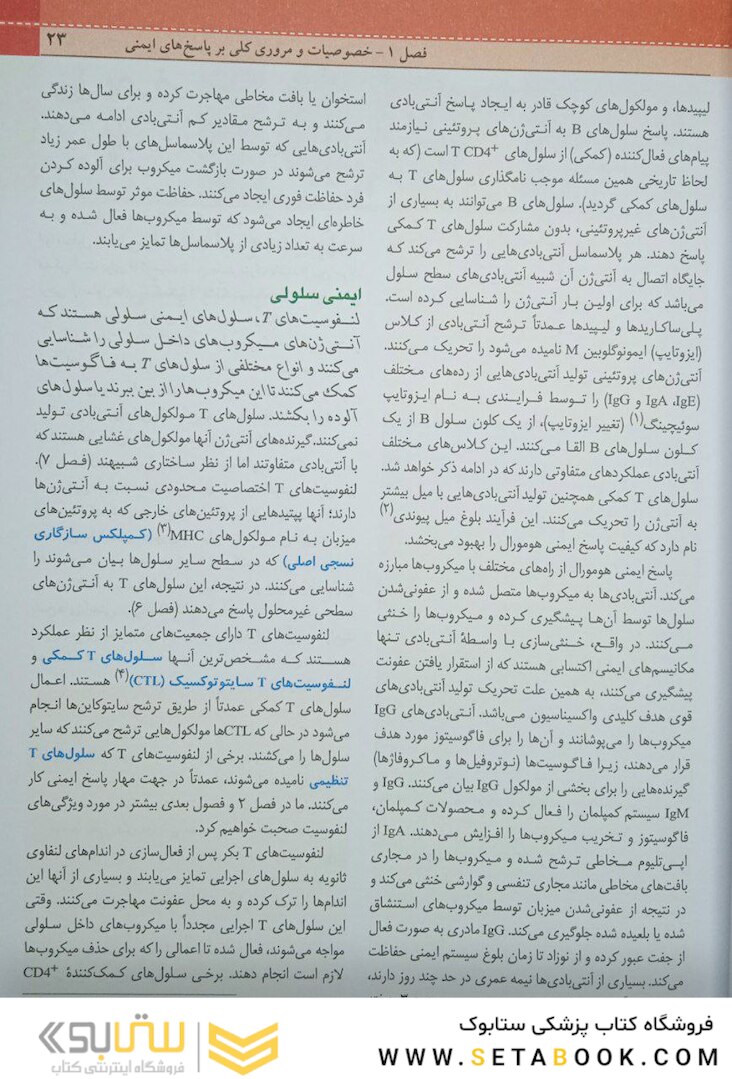 فصل ۱ - خصوصیات و مروری کلی بر پاسخ‌های ایمنی
۲۳
لیپیدها، و مولکول‌های کوچک قادر به ایجاد پاسخ آنتی‌بادی
هستند. پاسخ سلول‌های B به آنتی‌ژن‌های پروتئینی نیازمند
پیام‌های فعال‌کننده (کمکی) از سلول‌های T CD4+ است (که به
لحاظ تاریخی همین مسئله موجب نامگذاری سلول‌های T به
سلول‌های کمکی گردید). سلول‌های B می‌توانند به بسیاری از
آنتی‌ژن‌های غیرپروتئینی، بدون مشارکت سلول‌های T کمکی
پاسخ دهند. هر پلاسماسل آنتی‌بادی‌هایی را ترشح می‌کند که
جایگاه اتصال به آنتی‌ژن آن شبیه آنتی‌بادی‌های سطح سلول
می‌باشد که برای اولین بار آنتی‌ژن را شناسایی کرده است.
پلی‌ساکاریدها و لیپیدها عمدتاً ترشح آنتی‌بادی از کلاس
(ایزوتایپ) ایمونوگلوبین M نامیده می‌شود را تحریک می‌کنند.
آنتی‌ژن‌های پروتئینی تولید آنتی‌بادی‌هایی از رده‌های مختلف
(IgG و IgA ،IgE) را توسط فرایندی به نام ایزوتایپ
سوئیچینگ(۱) (تغییر ایزوتایپ)، از یک کلون سلول B از یک
کلون سلول‌های B القا می‌کنند. این کلاس‌های مختلف
آنتی‌بادی عملکردهای متفاوتی دارند که در ادامه ذکر خواهد شد.
سلول‌های T کمکی همچنین تولید آنتی‌بادی‌هایی با میل بیشتر
به آنتی‌ژن را تحریک می‌کنند. این فرآیند بلوغ میل پیوندی(۲)
نام دارد که کیفیت پاسخ ایمنی هومورال را بهبود می‌بخشد.
پاسخ ایمنی هومورال از راه‌های مختلف با میکروب‌ها مبارزه
می‌کند. آنتی‌بادی‌ها به میکروب‌ها متصل شده و از عفونی‌شدن
سلول‌ها توسط آن‌ها پیشگیری کرده و میکروب‌ها را خنثی
می‌کنند. در واقع، خنثی‌سازی با واسطهٔ آنتی‌بادی تنها
مکانیسم‌های ایمنی اکتسابی هستند که از استقرار یافتن عفونت
پیشگیری می‌کنند، به همین علت تحریک تولید آنتی‌بادی‌های
قوی هدف کلیدی واکسیناسیون می‌باشد. آنتی‌بادی‌های IgG
میکروب‌ها را می‌پوشانند و آن‌ها را برای فاگوسیتوز مورد هدف
قرار می‌دهند، زیرا فاگوسیت‌ها (نوتروفیل‌ها و ماکروفاژها)
گیرنده‌هایی را برای بخشی از مولکول IgG بیان می‌کنند. IgG و
IgM سیستم کمپلمان را فعال کرده و محصولات کمپلمان،
فاگوسیتوز و تخریب میکروب‌ها را افزایش می‌دهند. IgA از
اپی‌تلیوم مخاطی ترشح شده و میکروب‌ها را در مجاری
بافت‌های مخاطی مانند مجاری تنفسی و گوارشی خنثی می‌کند و
در نتیجه از عفونی‌شدن میزبان توسط میکروب‌های استنشاق
شده یا بلعیده شده جلوگیری می‌کند. IgG مادری به صورت فعال
از جفت عبور کرده و از نوزاد تا زمان بلوغ سیستم ایمنی حفاظت
می‌کند. بسیاری از آنتی‌بادی‌ها نیمه عمری در حد چند روز دارند،
استخوان یا بافت مخاطی مهاجرت کرده و برای سال‌ها زندگی
می‌کنند و به ترشح مقادیر کم آنتی‌بادی ادامه می‌دهند.
آنتی‌بادی‌هایی که توسط این پلاسماسل‌های با طول عمر زیاد
ترشح می‌شوند در صورت بازگشت میکروب برای آلوده کردن
فرد حفاظت فوری ایجاد می‌کنند. حفاظت موثر توسط سلول‌های
خاطره‌ای ایجاد می‌شود که توسط میکروب‌ها فعال شده و به
سرعت به تعداد زیادی از پلاسماسل‌ها تمایز می‌یابند.
ایمنی سلولی
لنفوسیت‌های T، سلول‌های ایمنی سلولی هستند که
آنتی‌ژن‌های میکروب‌های داخل سلولی را شناسایی
می‌کنند و انواع مختلفی از سلول‌های T به فاگوسیت‌ها
کمک می‌کنند تا این میکروب‌ها را از بین ببرند یا سلول‌های
آلوده را بکشند. سلول‌های T مولکول‌های آنتی‌بادی تولید
نمی‌کنند. گیرنده‌های آنتی‌ژن آنها مولکول‌های غشایی هستند که
با آنتی‌بادی متفاوتند اما از نظر ساختاری شبیهند (فصل ۷).
لنفوسیت‌های T اختصاصیت محدودی نسبت به آنتی‌ژن‌ها
دارند؛ آنها پپتیدهایی از پروتئین‌های خارجی که به پروتئین‌های
میزبان به نام مولکول‌های MHC(۳) (کمپلکس سازگاری
نسجی اصلی) که در سطح سایر سلول‌ها بیان می‌شوند را
شناسایی می‌کنند. در نتیجه، این سلول‌های T به آنتی‌ژن‌های
سطحی غیرمحلول پاسخ می‌دهند (فصل ۶).
لنفوسیت‌های T دارای جمعیت‌های متمایز از نظر عملکرد
هستند که مشخص‌ترین آنها سلول‌های T کمکی و
لنفوسیت‌های T سایتوتوکسیک (CTL)(۴) هستند. اعمال
سلول‌های T کمکی عمدتاً از طریق ترشح سایتوکاین‌ها انجام
می‌شود در حالی که CTLها مولکول‌هایی ترشح می‌کنند که سایر
سلول‌ها را می‌کشند. برخی از لنفوسیت‌های T که سلول‌های T
تنظیمی نامیده می‌شوند، عمدتاً در جهت مهار پاسخ ایمنی کار
می‌کنند. ما در فصل ۲ و فصول بعدی بیشتر در مورد ویژگی‌های
لنفوسیت صحبت خواهیم کرد.
لنفوسیت‌های T بکر پس از فعال‌سازی در اندام‌های لنفاوی
ثانویه به سلول‌های اجرایی تمایز می‌یابند و بسیاری از آنها این
اندام‌ها را ترک کرده و به محل عفونت مهاجرت می‌کنند. وقتی
این سلول‌های T اجرایی مجدداً با میکروب‌های داخل سلولی
مواجه می‌شوند، فعال شده تا اعمالی را که برای حذف میکروب‌ها
لازم است انجام دهند. برخی سلول‌های کمک‌کنندهٔ CD4+
فروشگاه کتاب پزشکی ستابوک
WWW.SETABOOK.COM
ستابوک
فروشگاه اینترنتی کتاب